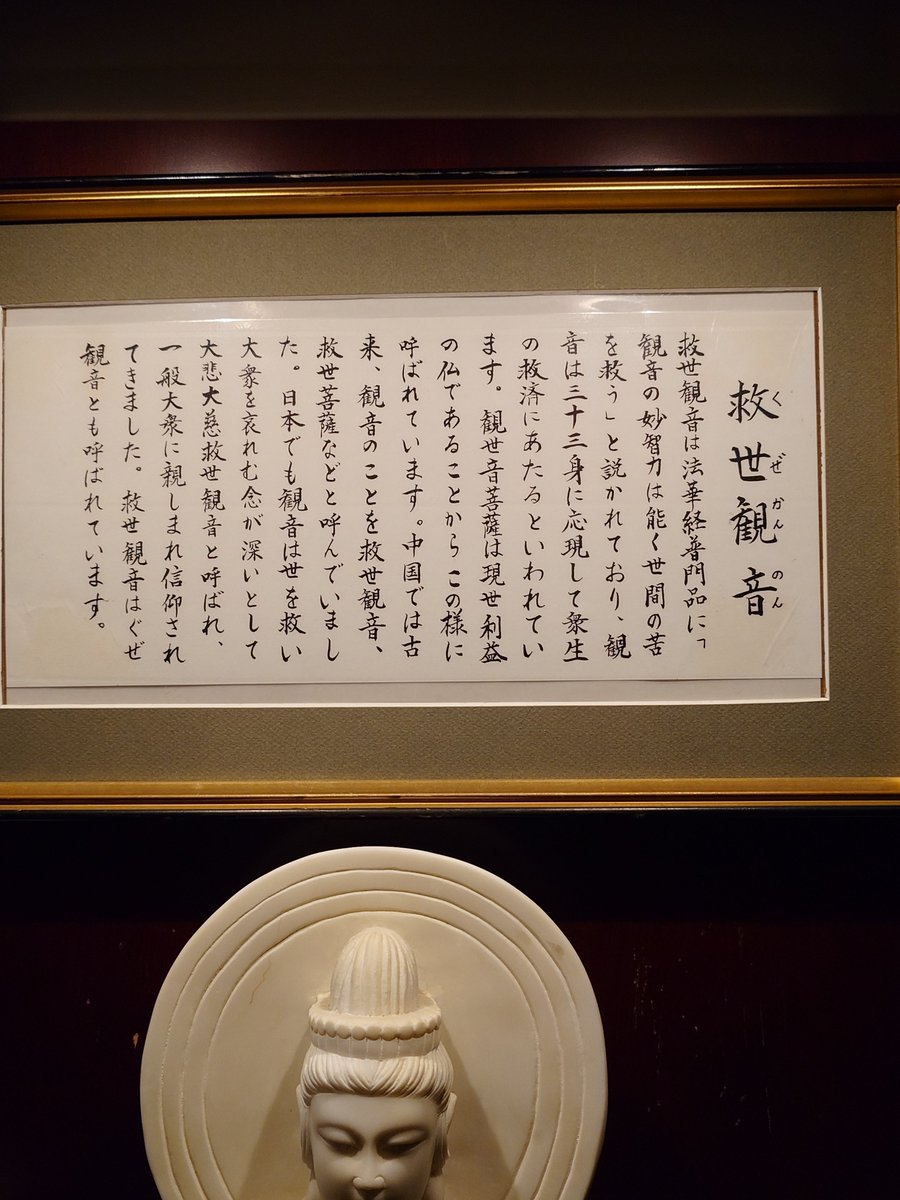 救世観音
くぜかんのん
救世観音は法華経普門品に「
観音の妙智力は能く世間の苦
を救う」と説かれており、観
音は三十三身に応現して衆生
の救済にあたるといわれてい
ます。観世音菩薩は現世利益
の仏であることからこの様に
呼ばれています。中国では古
来、観音のことを救世観音、
救世菩薩などと呼んでいまし
た。日本でも観音は世を救い
大衆を哀れむ念が深いとして
大悲大慈救世観音と呼ばれ、
一般大衆に親しまれ信仰され
てきました。救世観音はぐぜ
観音とも呼ばれています。